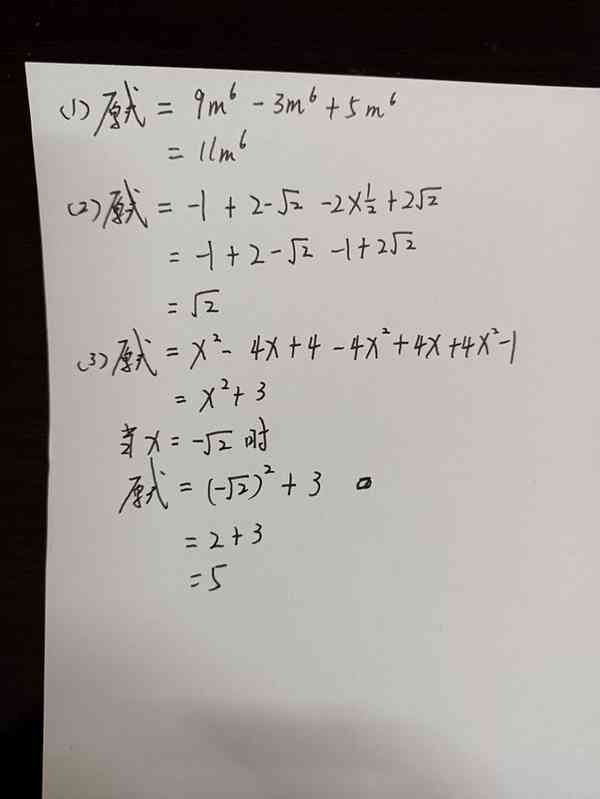 (1)原式 = 9m⁶ - 3m⁶ + 5m⁶
= 11m⁶
(2)原式 = -1 + 2-√2 -2×½ + 2√2
= -1 + 2 - √2 -1 + 2√2
= √2
(3)原式 = x² - 4x + 4 - 4x² + 4x + 4x² - 1
= x² + 3
当x = -√2时
原式 = (-√2)² + 3
= 2 + 3
= 5